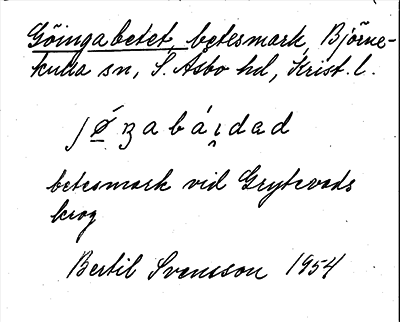 Göingabetet, betesmark, Björne-
kulla sn, S. Åsbo hd, Krist. l.
betesmark vid Grytevads
krog
Bertil Svensson 1954